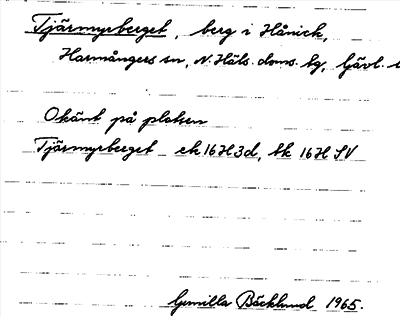 Tjärmyrberget, berg i Hånick,
Harmångers sn, N. Häls. doms. tg, Gävl.
Okänt på platsen
Tjärmyrberget ek 16H3d, tk 16 H SV
Gunilla Bäcklund 1965.